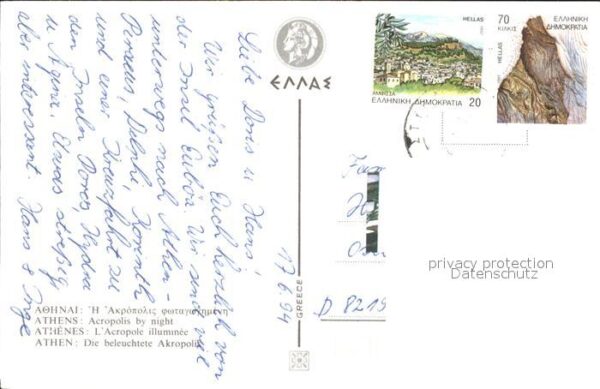 Liebe Doris u Hans!
Wir grüßen Euch herzlich von
der Insel Euböa. Wir sind viel
unterwegs nach Athen -
Piraeus, Delphi, Korinth
und einer Kreuzfahrt zu
den Inseln Poros, Hydra
u Ägina. Etwas stressig
aber interessant. Hans & Inge
17.6.94
ΕΛΛΑΣ
GREECE
ΑΘΗΝΑΙ: Ἡ Ἀκρόπολις φωταγωγημένη
ATHENS: Acropolis by night
ATHÈNES: L'Acropole illuminée
ATHEN: Die beleuchtete Akropolis
HELLAS
ΑΜΦΙΣΣΑ
ΕΛΛΗΝΙΚΗ ΔΗΜΟΚΡΑΤΙΑ
20
70
ΚΙΛΚΙΣ
HELLAS
ΕΛΛΗΝΙΚΗ
ΔΗΜΟΚΡΑΤΙΑ
Fam
D 8219
privacy protection
Datenschutz